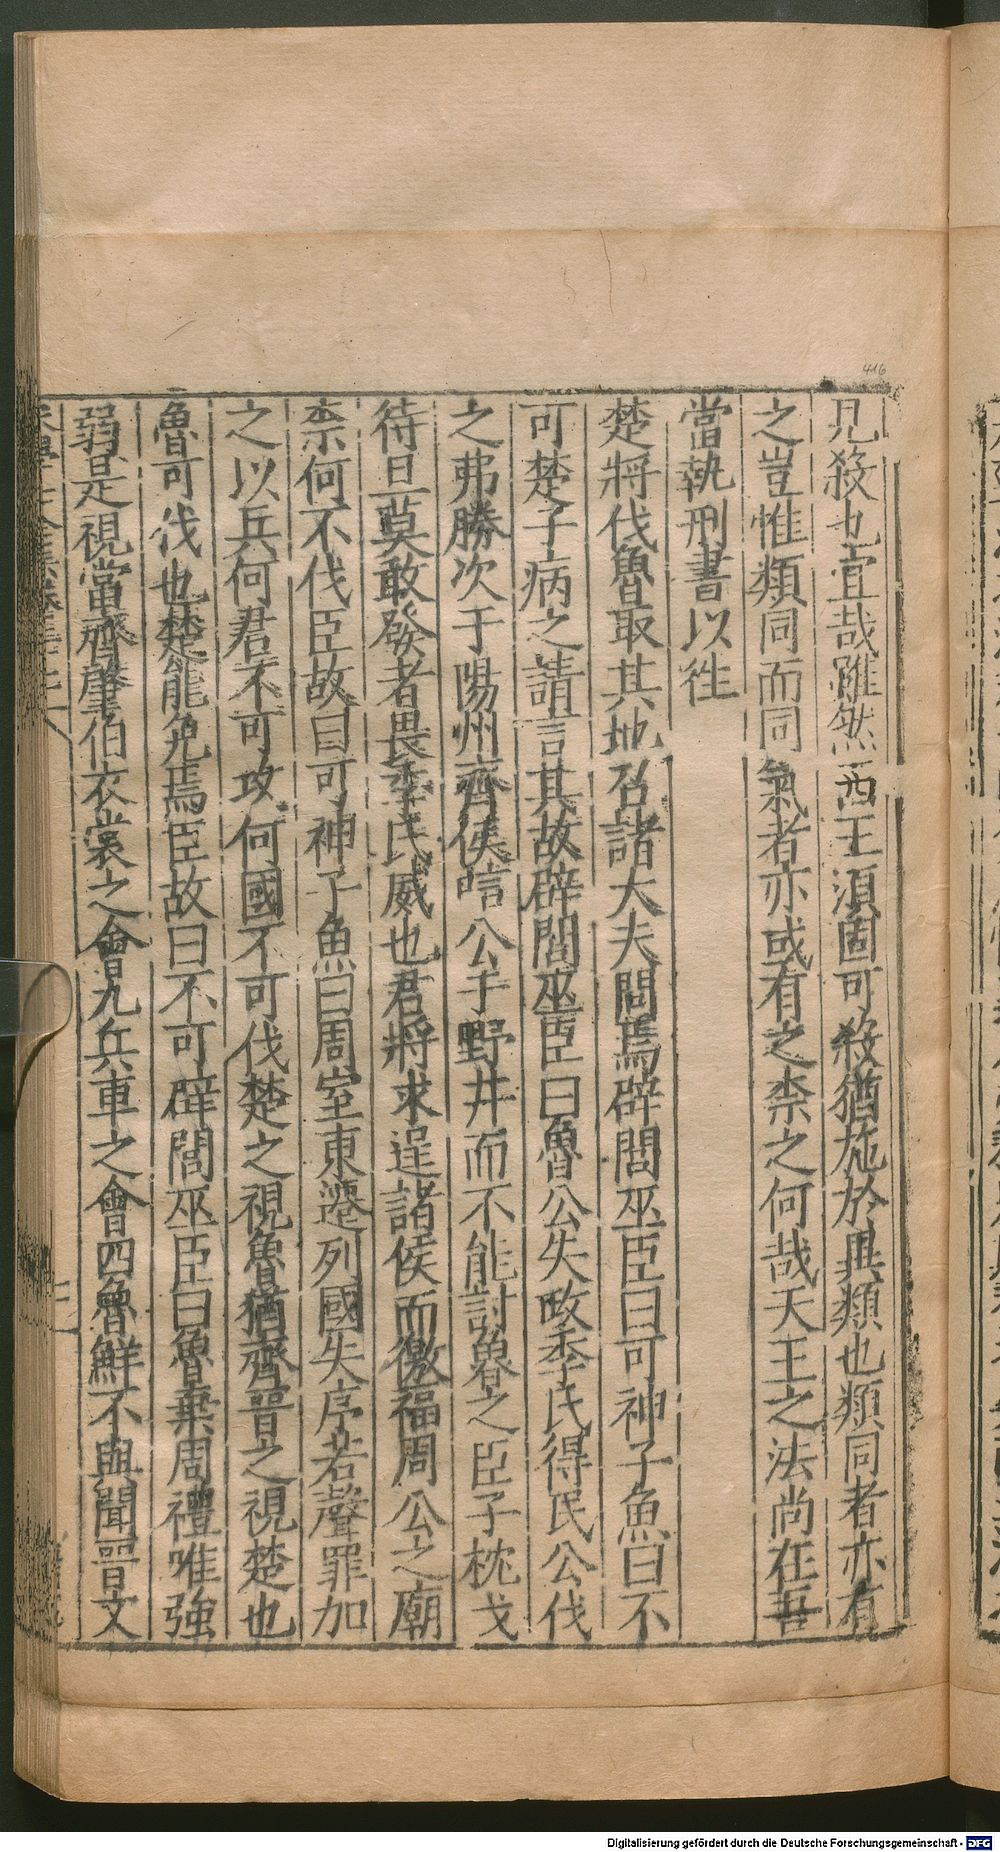 416
見殺也宜哉雖然西王湏固可殺猶施於異類也類同者亦有
之豈惟類同而同氣者亦或有之柰之何哉天王之法尚在吾
當執刑書以徃
楚將伐魯取其地召諸大夫問焉辟閭巫臣曰可神子魚曰不
可楚子病之請言其故辟閭巫臣曰魯公失政季氏得民公伐
之弗勝次于陽州齊侯唁公于野井而不能討魯之臣子枕戈
待旦莫敢發者畏季氏威也君將求逞諸侯而徼福周公之廟
柰何不伐臣故曰可神子魚曰周室東遷列國失序若聲罪加
之以兵何君不可攻何國不可伐楚之視魯猶齊晉之視楚也
魯可伐也楚能免焉臣故曰不可辟閭巫臣曰魯棄周禮唯強
弱是視當齊肇伯衣裳之會九兵車之會四魯鮮不與聞晉文
Digitalisierung gefördert durch die Deutsche Forschungsgemeinschaft - DFG